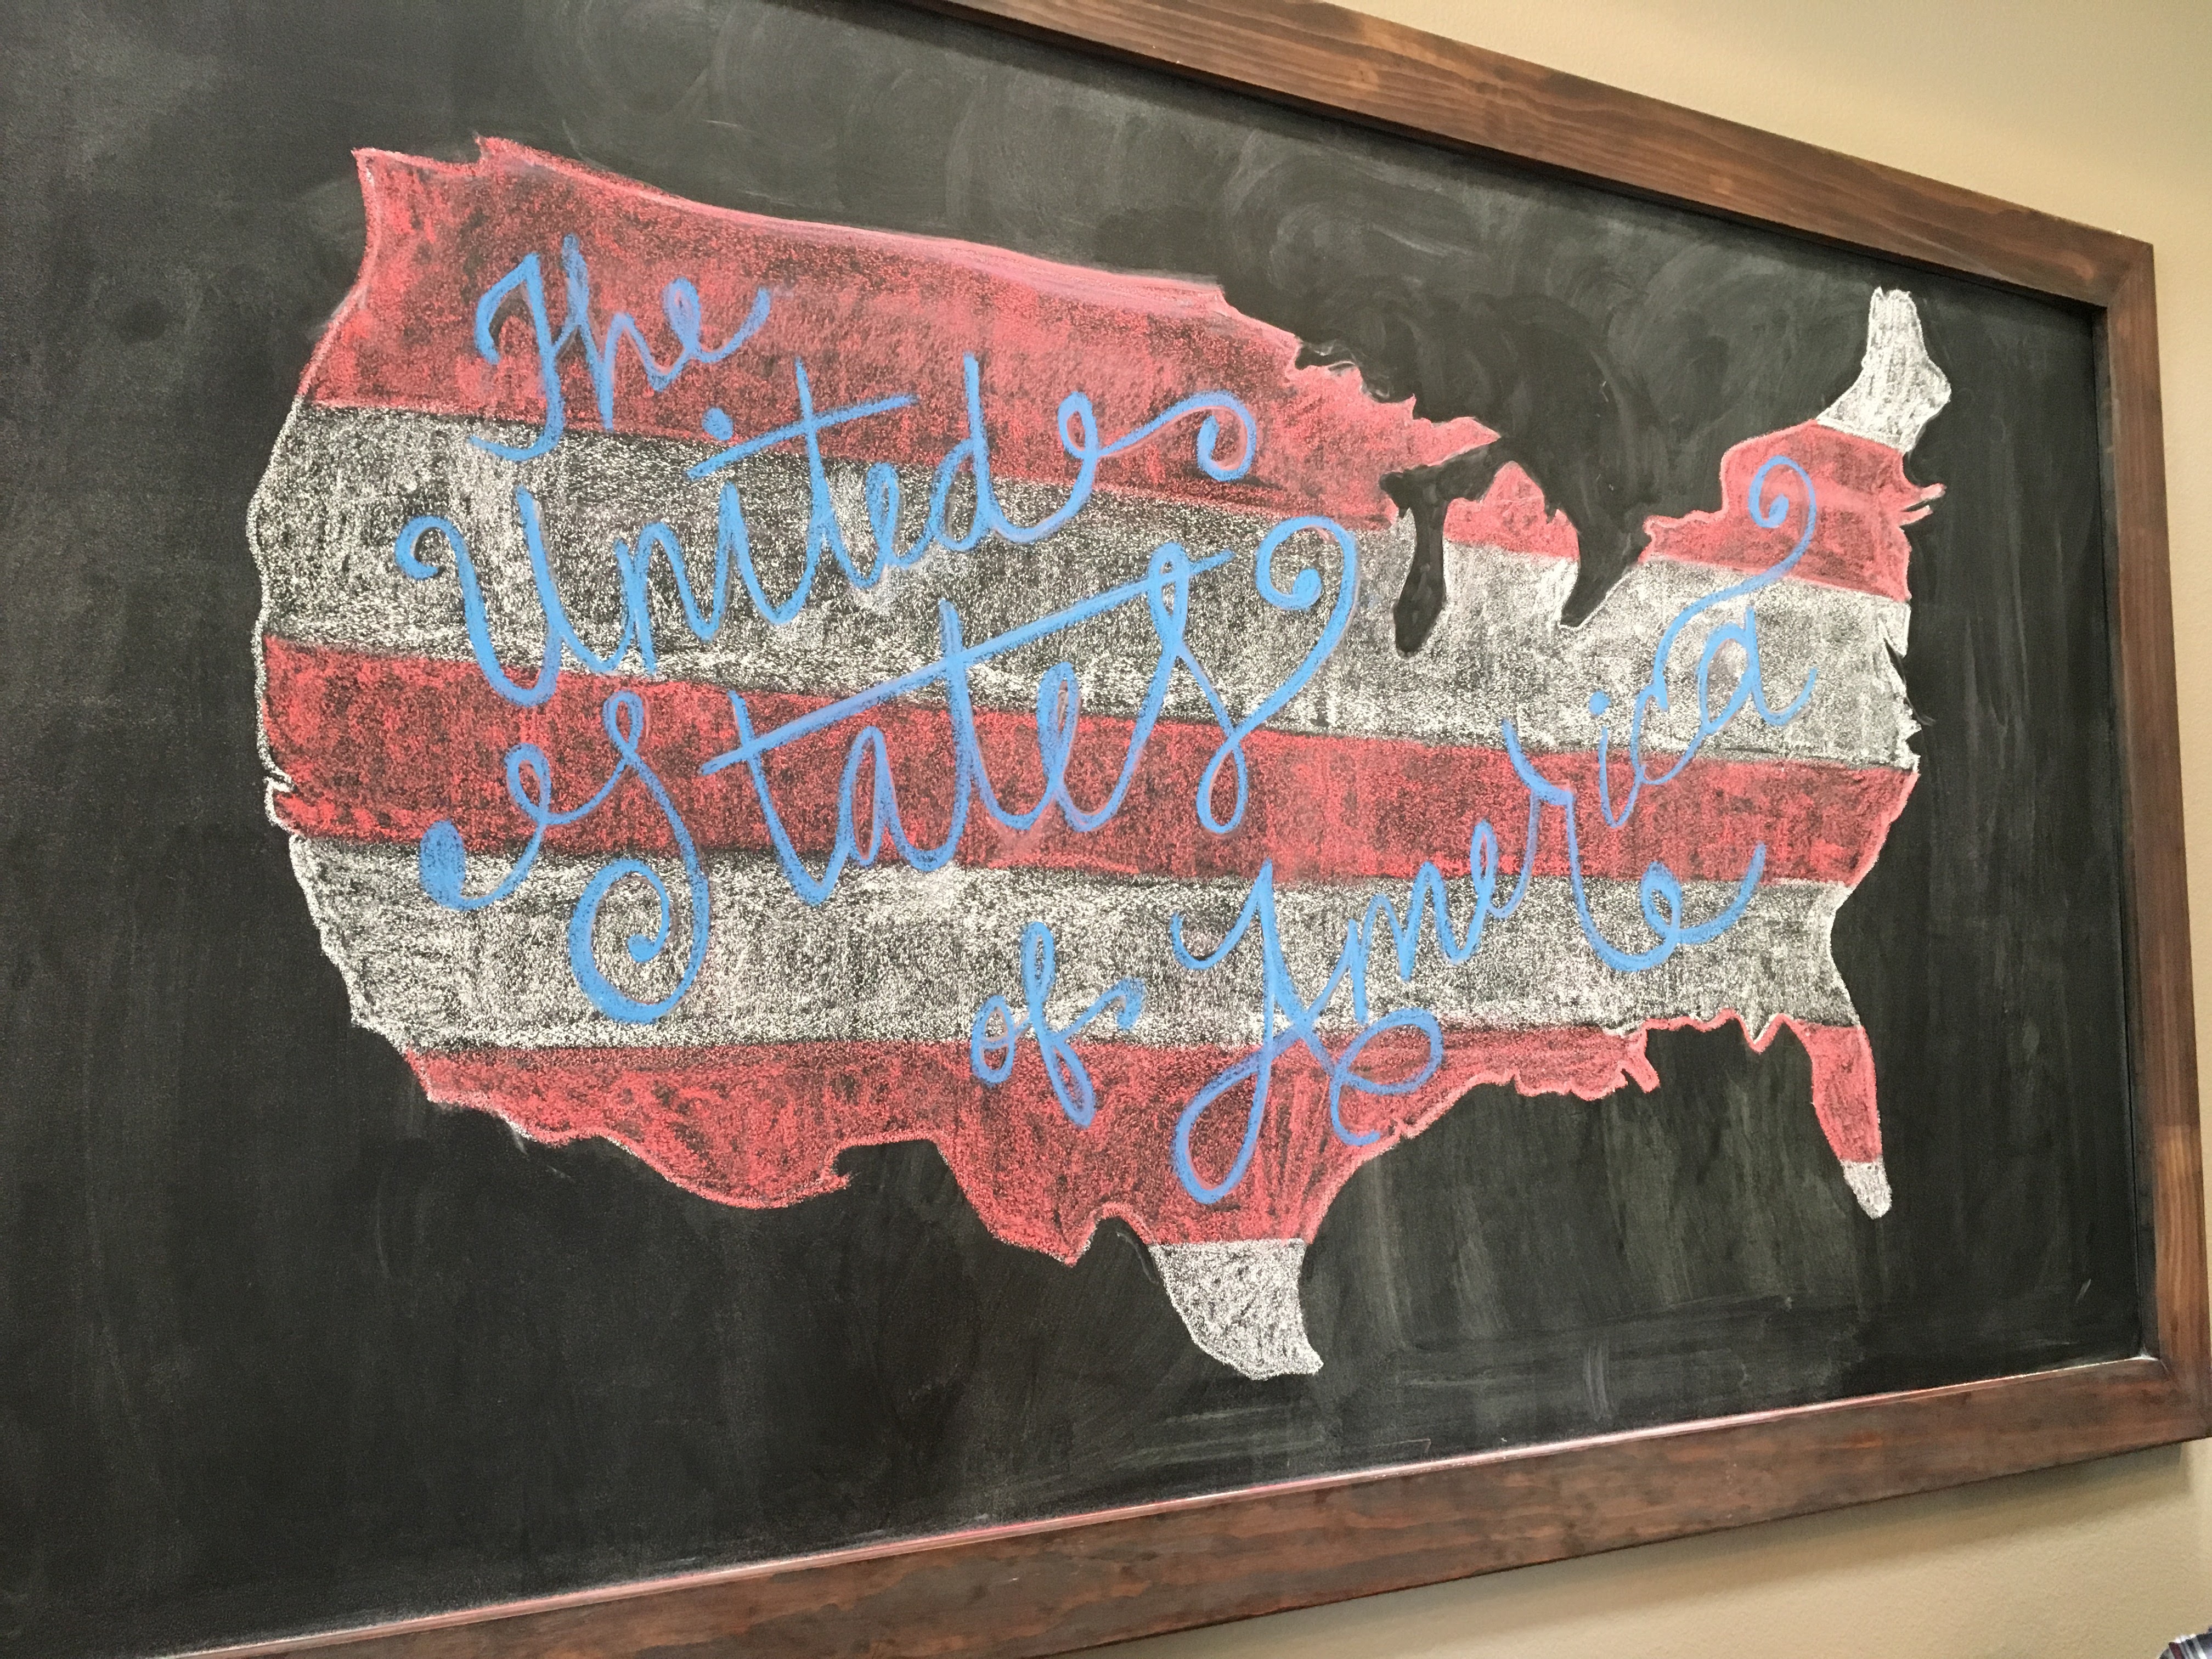 The
United
States
of America